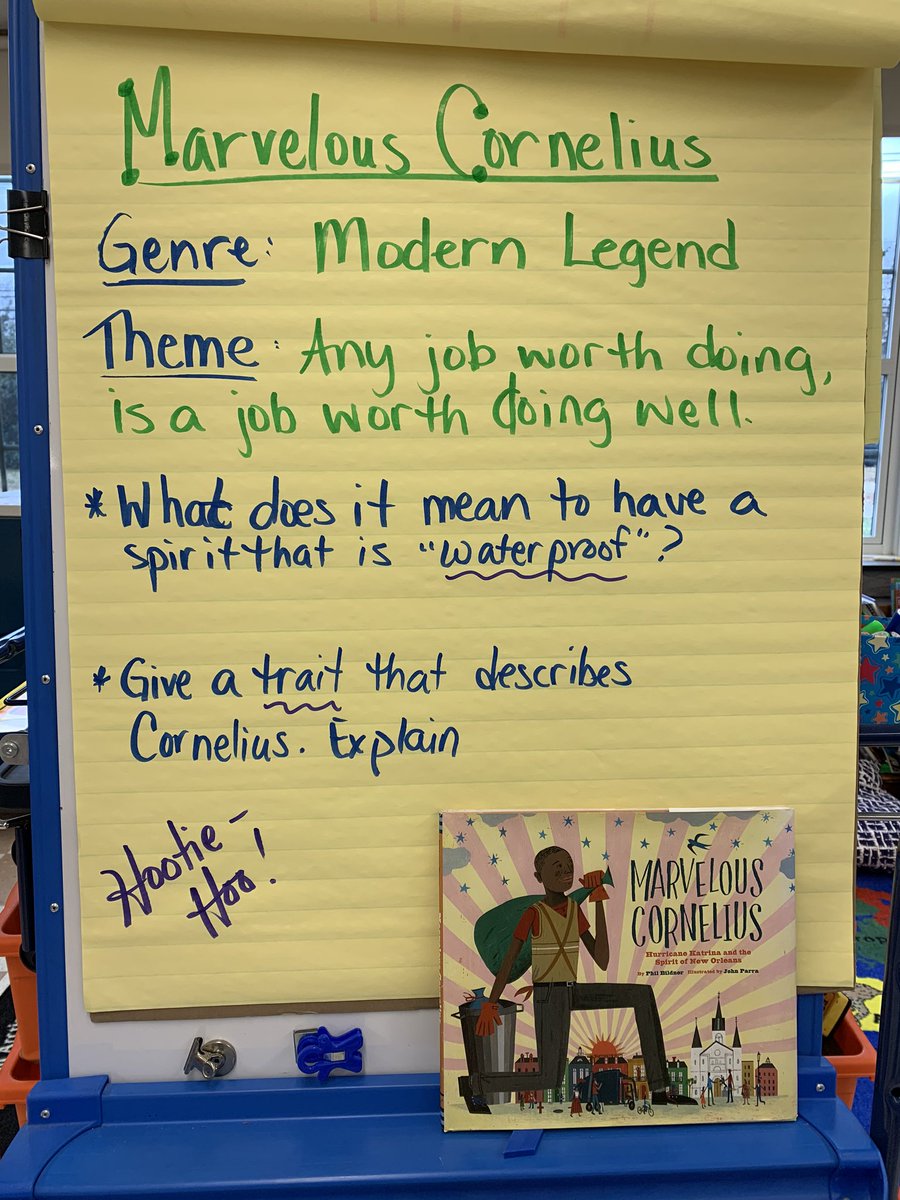 Marvelous Cornelius
Genre: Modern Legend
Theme: Any job worth doing,
is a job worth doing well.
* What does it mean to have a
spirit that is "waterproof"?
* Give a trait that describes
Cornelius. Explain
Hootie-
Hoo!
MARVELOUS
CORNELIUS
Hurricane Katrina and the
Spirit of New Orleans
By Phil Bildner Illustrated by John Parra